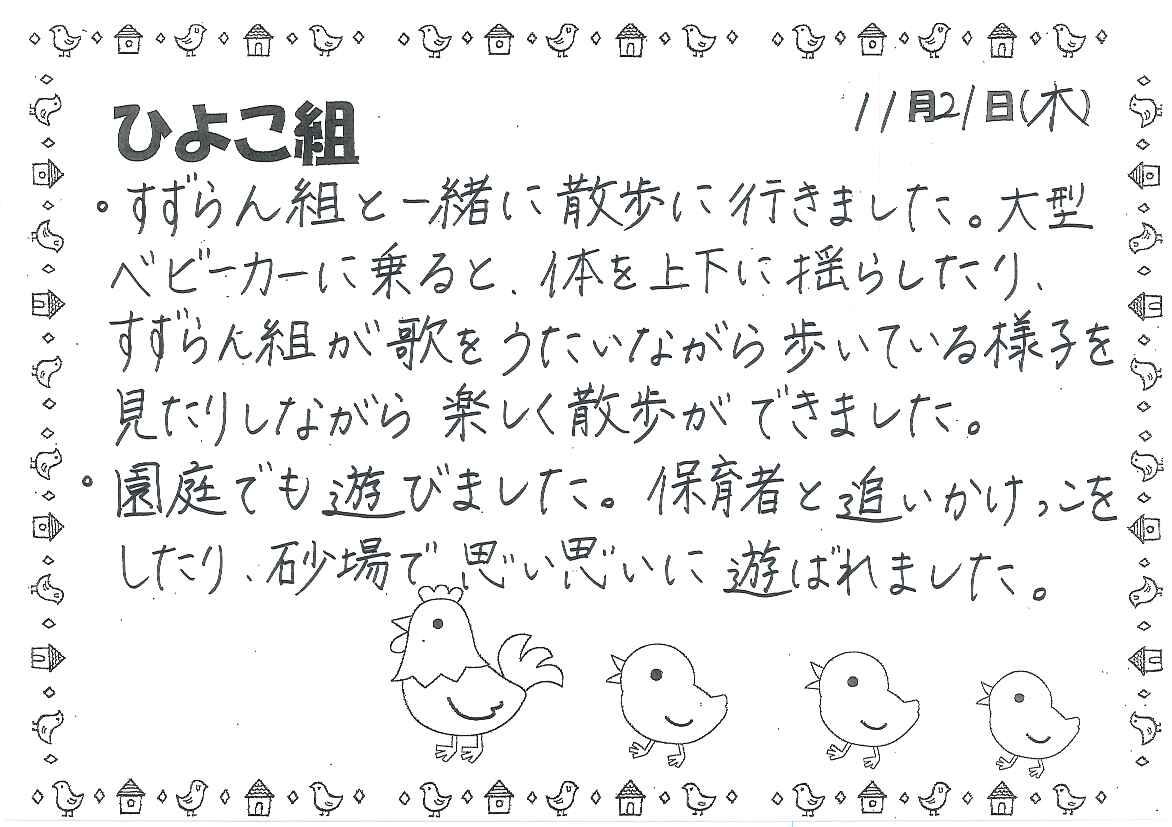 ひよこ組
11月21日(木)
。すずらん組と一緒に散歩に行きました。大型
ベビーカーに乗ると、体を上下に揺らしたり、
すずらん組が歌をうたいながら歩いている様子を
見たりしながら楽しく散歩ができました。
。園庭でも遊びました。保育者と追いかけっこを
したり、砂場で思い思いに遊ばれました。